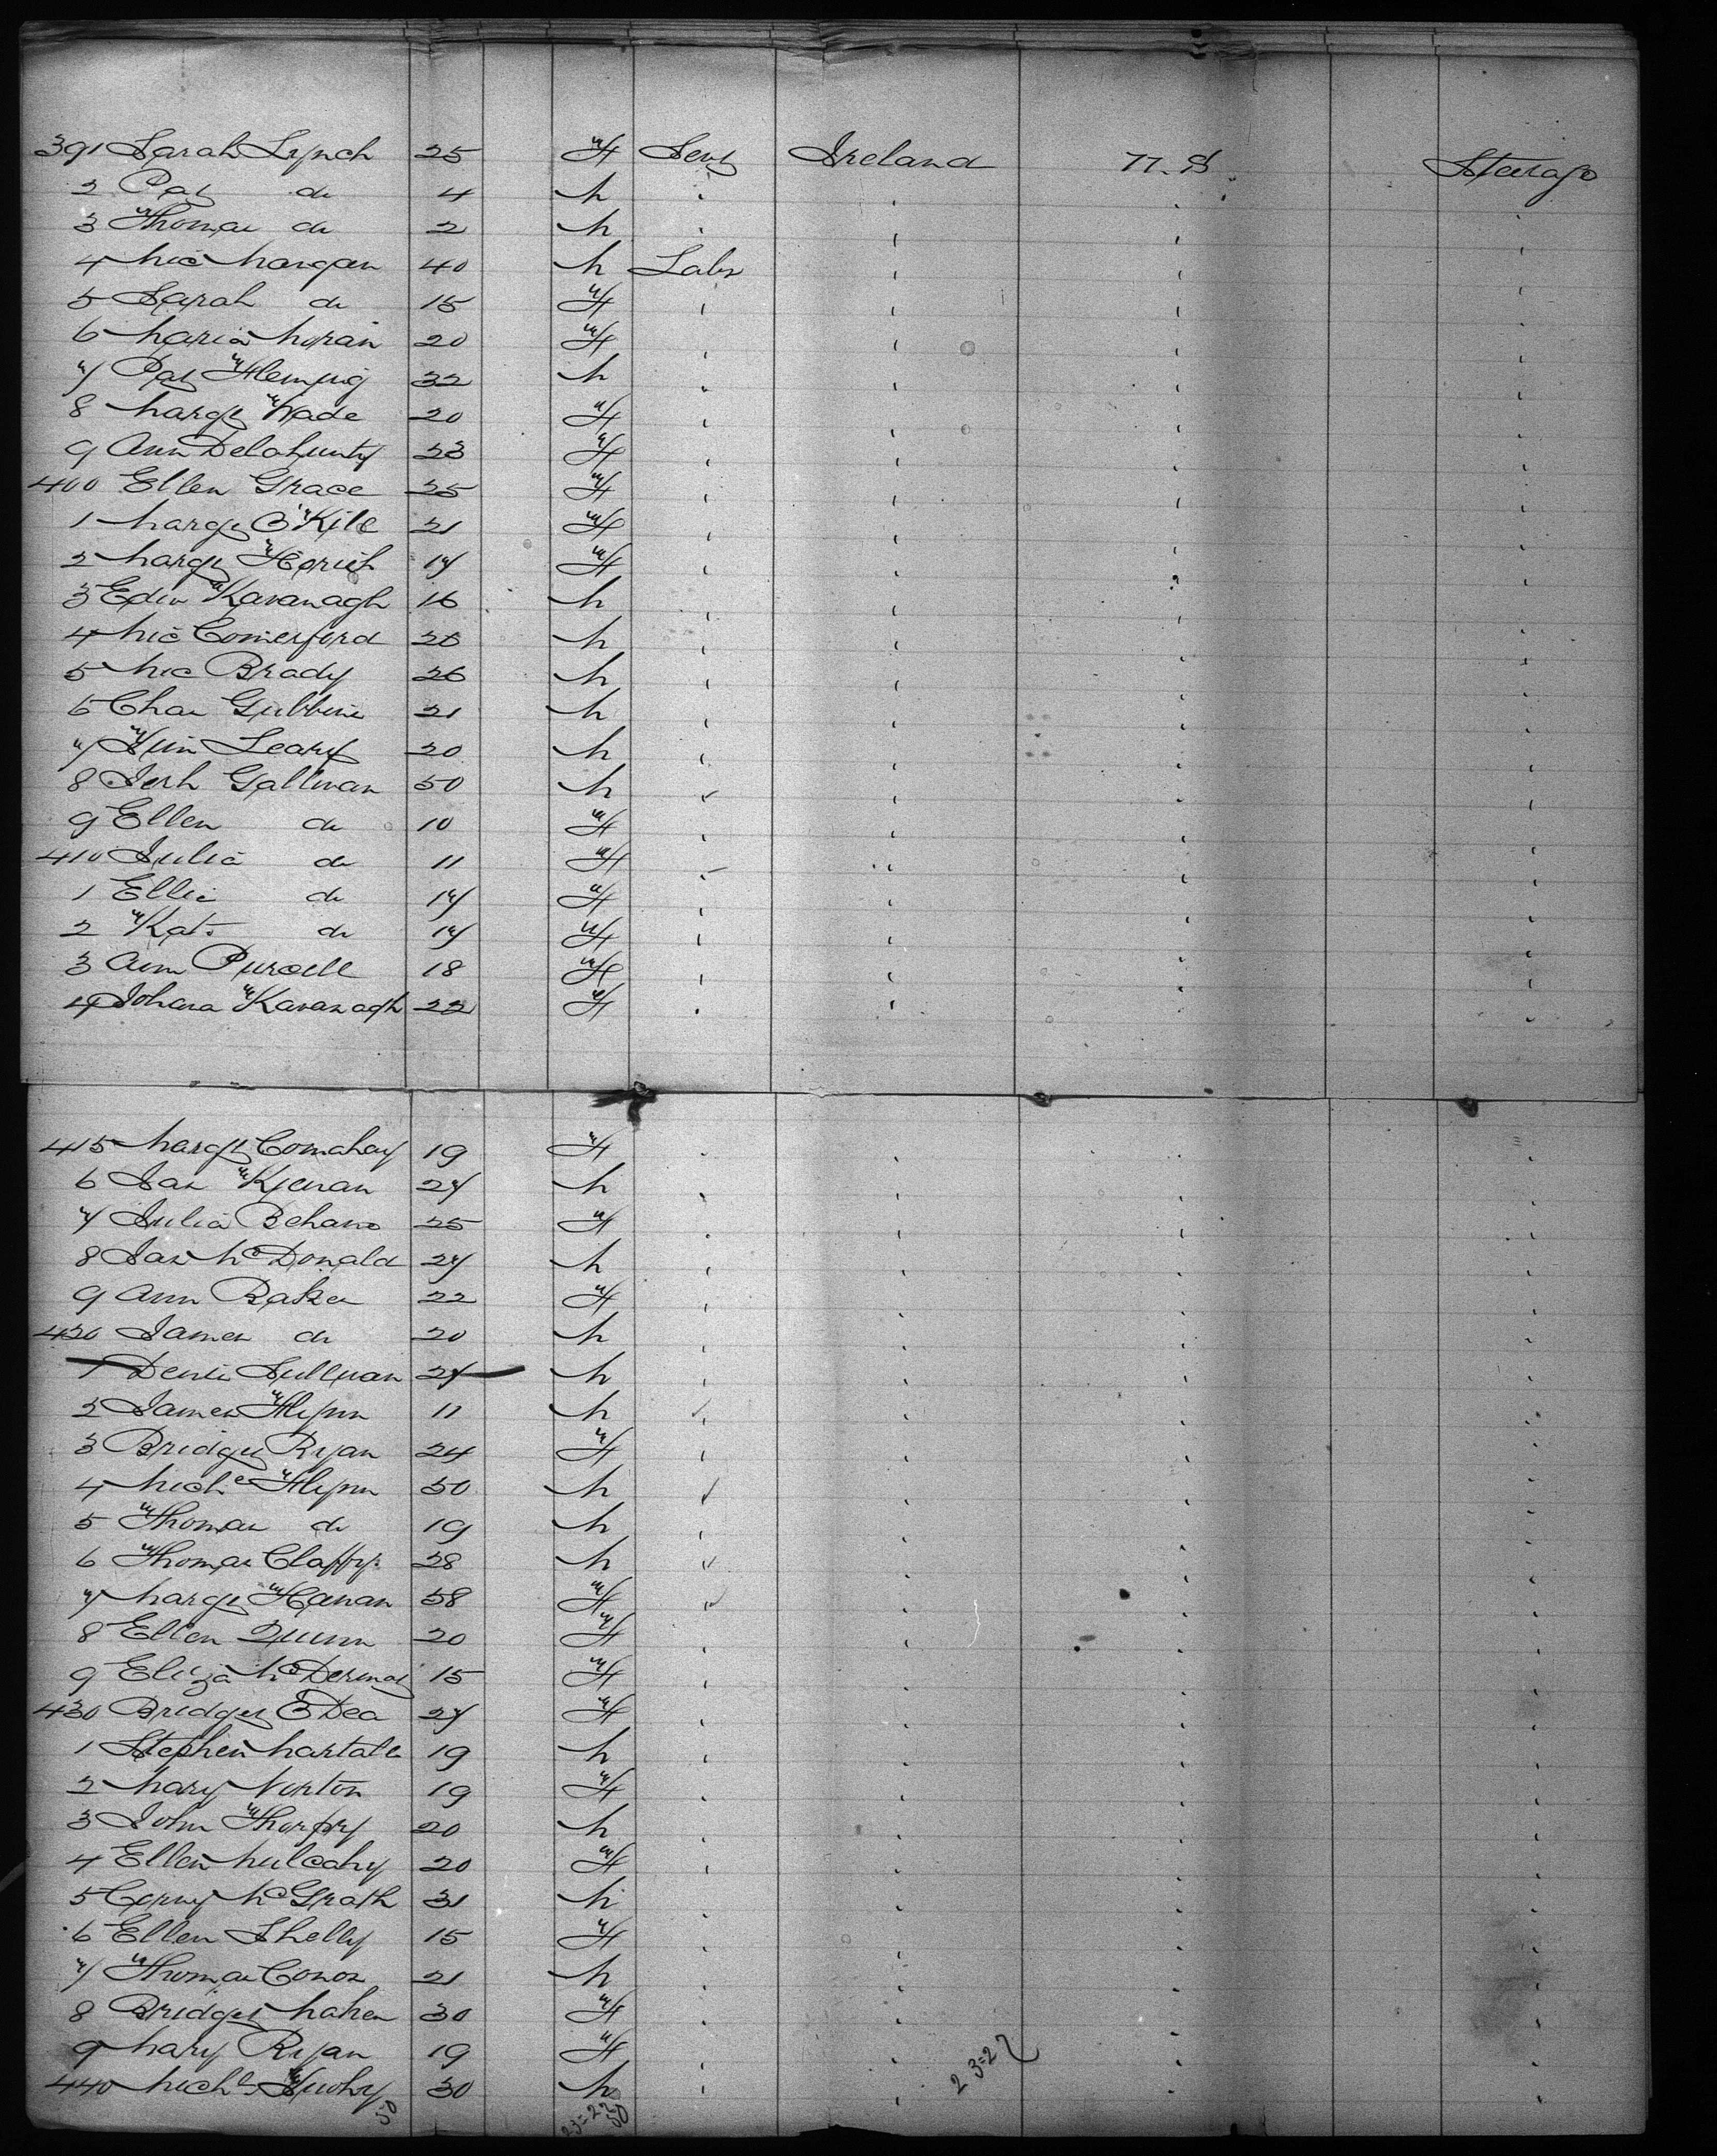 391 Sarah Lynch 25 F Serv Ireland U. S. Steerage
2 Pat do 4 M
3 Thomas do 2 M
4 Mic Mangan 40 M Labr
5 Sarah do 15 F
6 Maria Moran 20 F
7 Pat Fleming 32 M
8 Margt Wade 20 F
9 Ann Delahunty 23 F
400 Ellen Grace 25 F
1 Margt 21 F
2 Margt 17 F
3 Edw Kavanagh 16 M
4 Mic Comerford 26 M
5 Mic Brady 26 M
6 Chas Gubbins 21 M
7 Leary 20 M
8 Jerh Gallivan 50 M
9 Ellen do 10 F
410 Julia do 11 F
1 Ellie do 17 F
2 Kate do 17 F
3 Ann Purcell 18 F
4 Johana Kavanagh 22 F
415 Margt 19 F
6 Jas 27 M
7 Julia Behane 25 F
8 Jas McDonald 27 M
9 Ann Baker 22 F
420 James do 20 M
1 Denis Sullivan 27 M
2 James Flynn 11 M
3 Bridget Ryan 24 F
4 Michl Flynn 50 M
5 Thomas do 19 M
6 Thomas Claffy 28 M
7 Margt Hanan 58 F
8 Ellen Quinn 20 F
9 Eliza McDermot 15 F
430 Bridget O'Dea 27 F
1 Stephen 19 M
2 Mary Norton 19 F
3 John 20 M
4 Ellen Mulcahy 20 F
5 Corny McGrath 31 M
6 Ellen Shelly 15 F
7 Thomas Conor 21 M
8 Bridget Maher 30 F
9 Mary Ryan 19 F
440 Michl 30 M
50 23=22 50 23=27